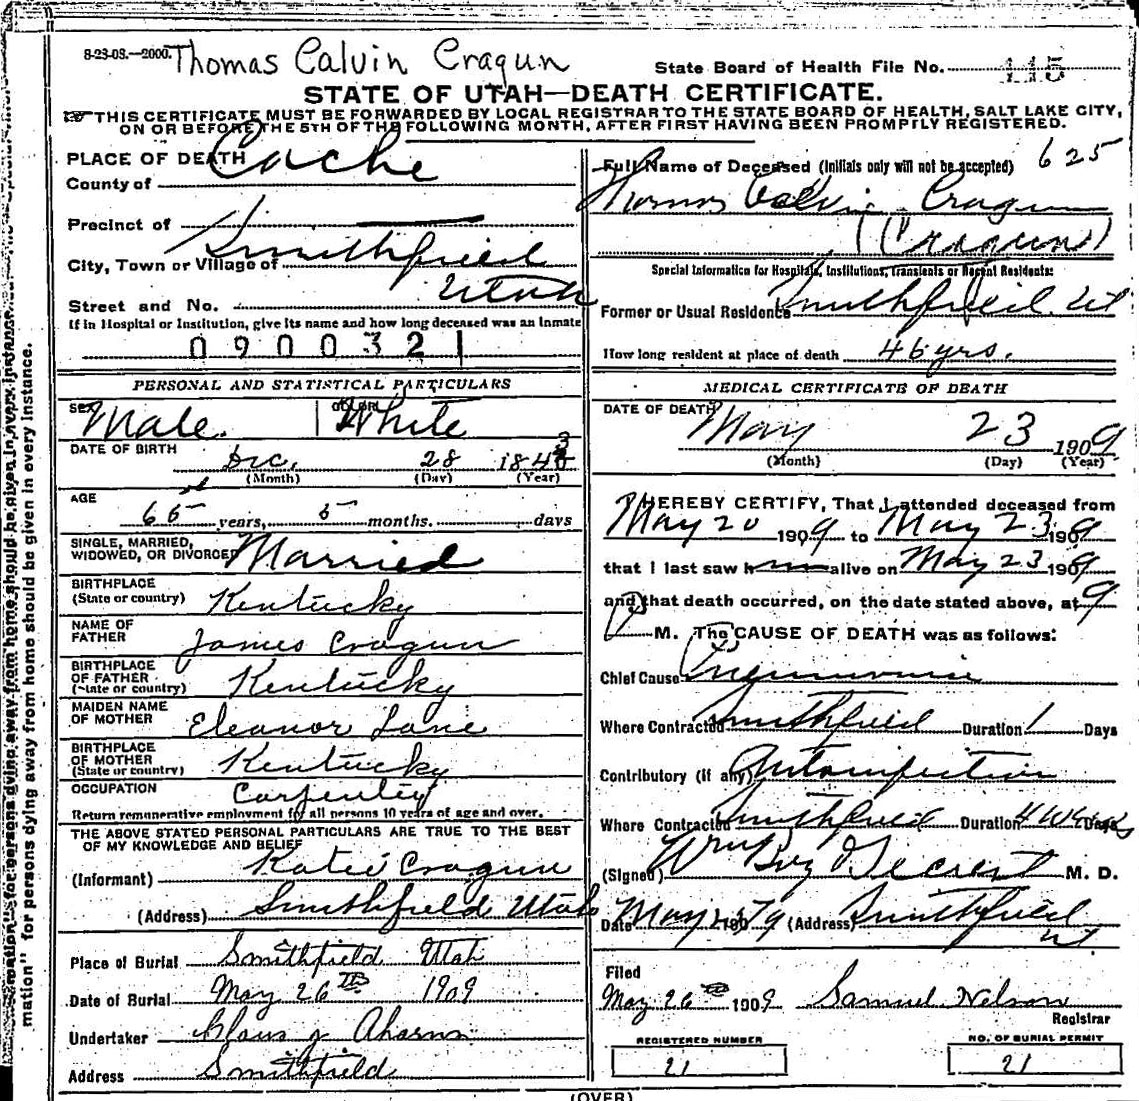 8-23-08.—2000.
Thomas Calvin Cragun
State Board of Health File No. 115
STATE OF UTAH—DEATH CERTIFICATE.
THIS CERTIFICATE MUST BE FORWARDED BY LOCAL REGISTRAR TO THE STATE BOARD OF HEALTH, SALT LAKE CITY,
ON OR BEFORE THE 5TH OF THE FOLLOWING MONTH, AFTER FIRST HAVING BEEN PROMPTLY REGISTERED.
PLACE OF DEATH
County of Cache
Precinct of
City, Town or Village of Smithfield
Street and No. Utah
If in Hospital or Institution, give its name and how long deceased was an Inmate
0900321
PERSONAL AND STATISTICAL PARTICULARS
SEX Male. COLOR White
DATE OF BIRTH Dec. 28 184 3
(Month) (Day) (Year)
AGE 65 years, 5 months. days
SINGLE, MARRIED,
WIDOWED, OR DIVORCED Married
BIRTHPLACE
(State or country) Kentucky
NAME OF
FATHER James Cragun
BIRTHPLACE
OF FATHER
(State or country) Kentucky
MAIDEN NAME
OF MOTHER Eleanor Lane
BIRTHPLACE
OF MOTHER
(State or country) Kentucky
OCCUPATION Carpenter
Return remunerative employment for all persons 10 years of age and over.
THE ABOVE STATED PERSONAL PARTICULARS ARE TRUE TO THE BEST
OF MY KNOWLEDGE AND BELIEF
(Informant) Katie Cragun
(Address) Smithfield Utah
Place of Burial Smithfield Utah
Date of Burial May 26th 1909
Undertaker
Address Smithfield
625
Full Name of Deceased (Initials only will not be accepted)
Thomas Calvin Cragun
(Cragun)
Special Information for Hospitals, Institutions, Transients or Recent Residents:
Former or Usual Residence Smithfield Ut
How long resident at place of death 46 yrs.
MEDICAL CERTIFICATE OF DEATH
DATE OF DEATH May 23 1909
(Month) (Day) (Year)
I HEREBY CERTIFY, That I attended deceased from
May 20 1909 to May 23 1909
that I last saw h alive on May 23 1909
and that death occurred, on the date stated above, at 9
P M. The CAUSE OF DEATH was as follows:
Chief Cause Pneumonia
Where Contracted Smithfield Duration 1 Days
Contributory (if any) Autoinfection
Where Contracted Smithfield Duration 4 Weeks Days
(Signed) M. D.
Date May 1909 (Address) Smithfield
Ut
Filed
May 26th 1909 Samuel Nelson
Registrar
REGISTERED NUMBER
21
NO. OF BURIAL PERMIT
21
(OVER)
mation" for persons dying away from home should be given in every instance.